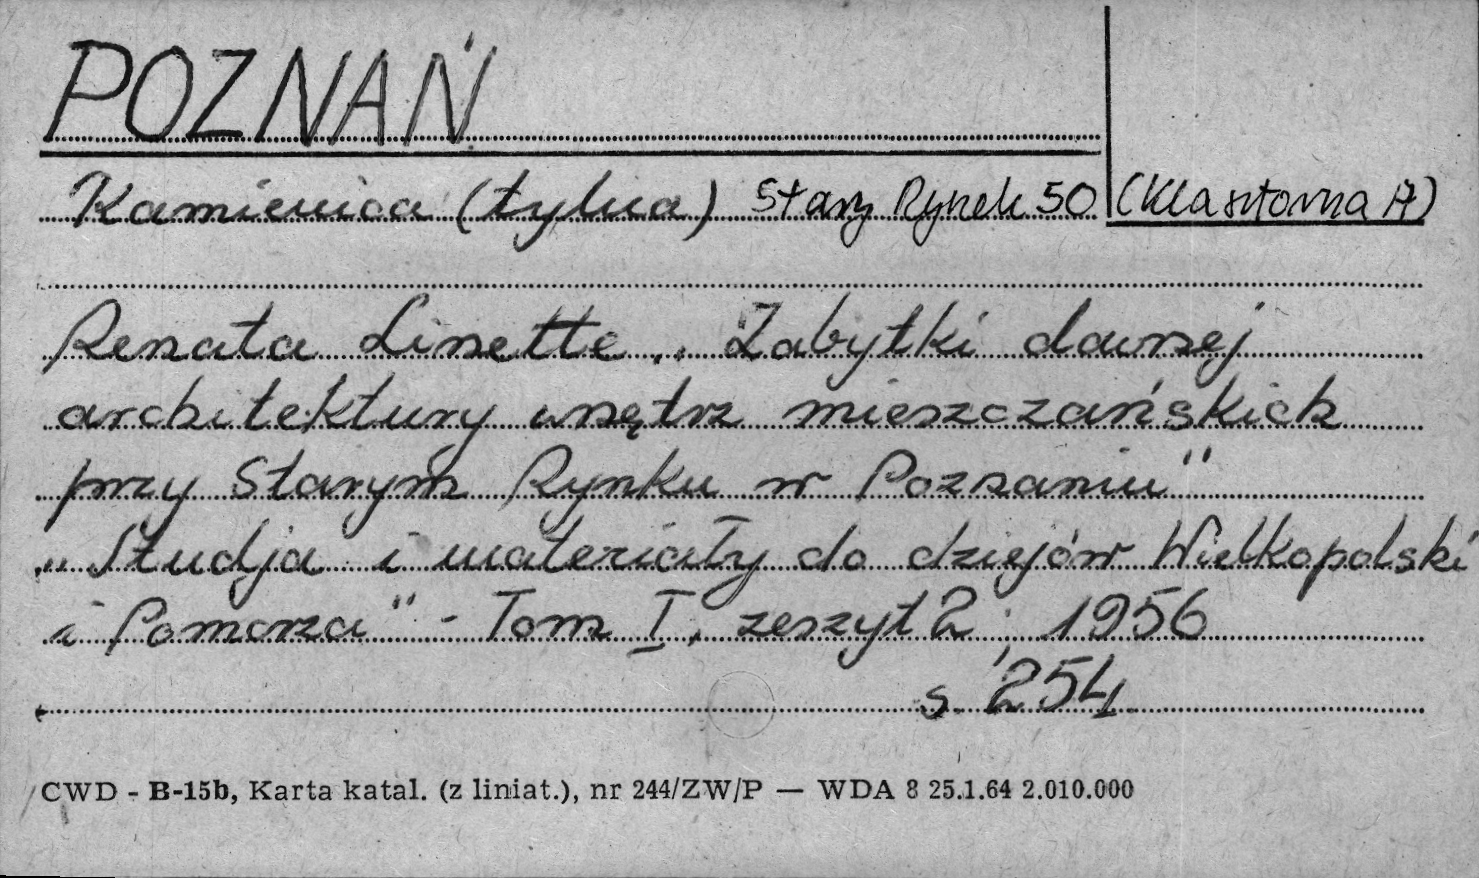 POZNAŃ
Kamienica (tylna) Stary Rynek 50 (Klasztorna
Renata Linette „ Zabytki dawnej
architektury wnętrz mieszczańskich
przy Starym Rynku w Poznaniu"
„Studja i materiały do dziejów Wielkopolski
i Pomorza" - Tom I, zeszyt 2, 1956
s. 254
CWD - B-15b, Karta katal. (z liniat.), nr 244/ZW/P — WDA 8 25.1.64 2.010.000